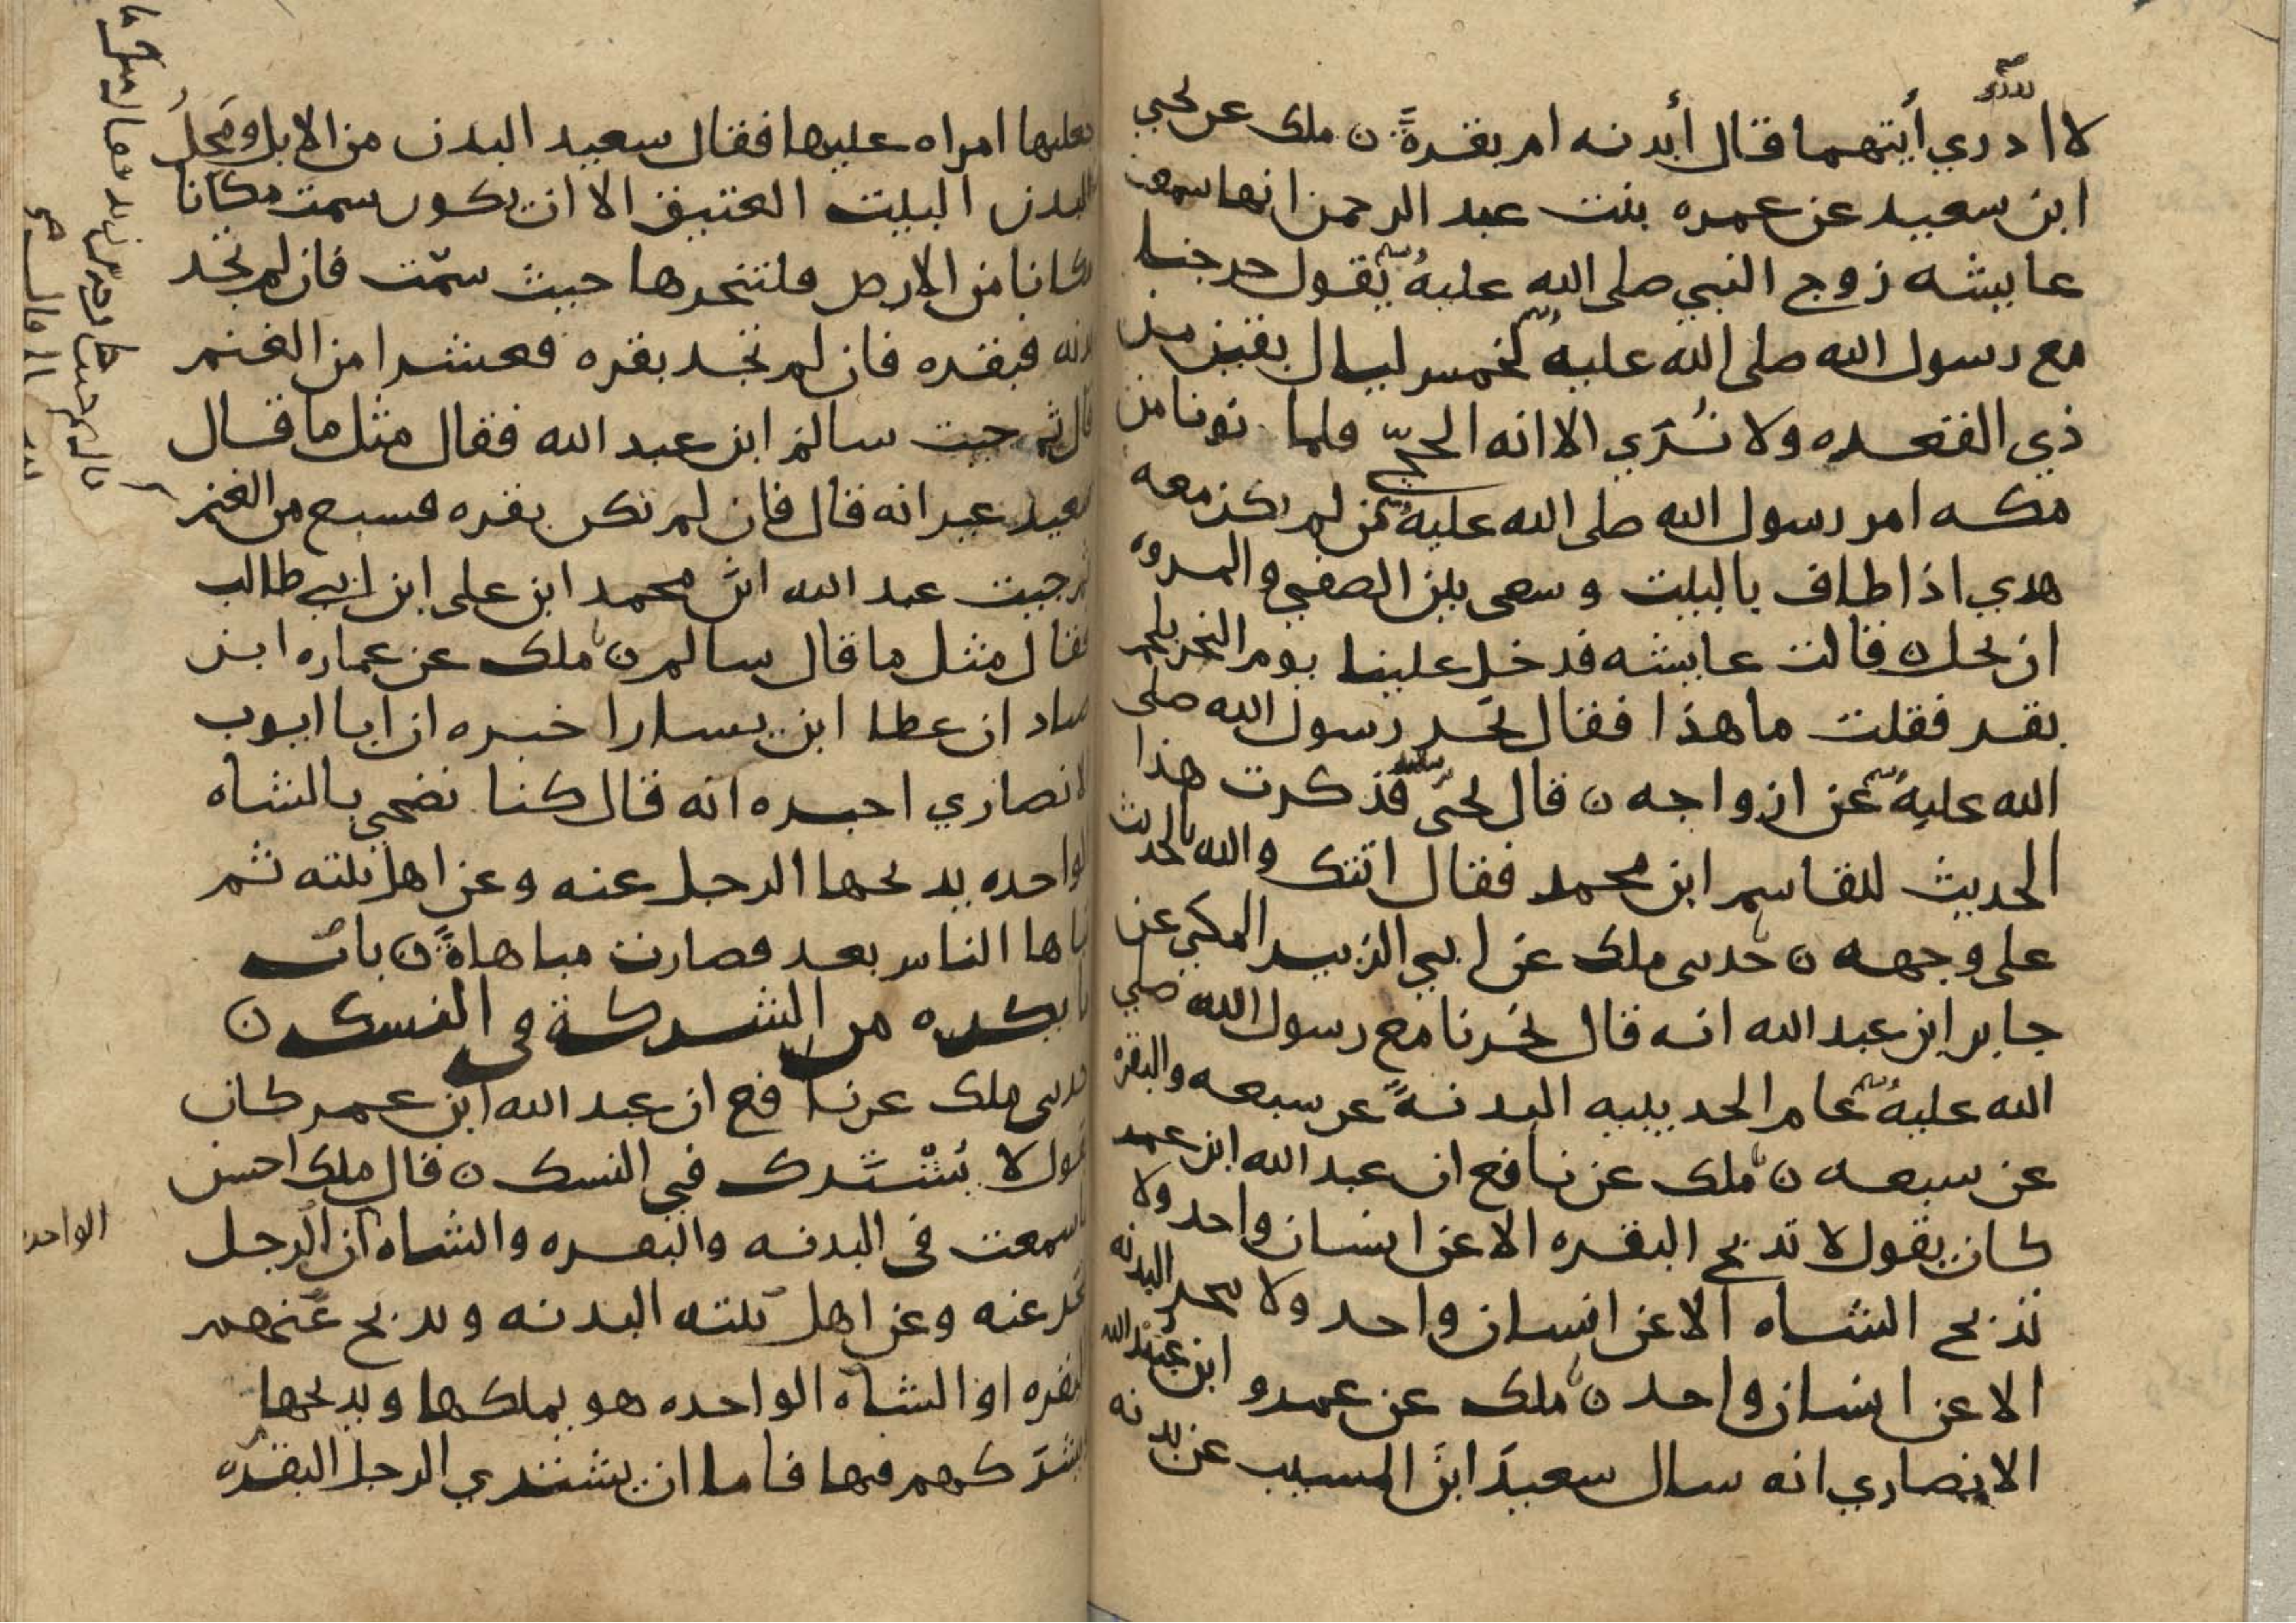 لا ادري أيتهما قال أبدنه ام بقرةً ن ملك عن يحيى
ابن سعيد عن عمره بنت عبد الرحمن انها سمعت
عايشه زوج النبي صلى الله عليه تقول خرجنا
مع رسول الله صلى الله عليه لخمس ليال بقين من
ذي القعده ولا نُرَي الا انه الحجّ فلما دنونا من
مكه امر رسول الله صلى الله عليه من لم يكن معه
هدي اذا طاف بالبيت وسعى بين الصفي والمروه
ان يحل ن قالت عايشه فدخل علينا يوم النحر بلحم
بقر فقلت ما هذا فقال نحَر رسول الله صلى
الله عليه عن ازواجه ن قال يحيى فذكرت هذا
الحديث للقاسم ابن محمد فقال اتتك والله بالحديث
على وجهه ن حدىى ملك عن ابي الزبير المكي عن
جابر ابن عبد الله انه قال نحرنا مع رسول الله صلي
الله عليه عام الحديبيه البدنةً عن سبعه والبقره
عن سبعه ن ملك عن نافع ان عبد الله ابن عمر
كان يقول لا تذبح البقره الا عن انسان واحد ولا
تذبح الشاه الا عن انسان واحد ولا ىىحر البدنه
الا عن انسان واحد ن ملك عن عمرو ابن عُبَيْد الله
الانصاري انه سال سعيدَ ابنَ المسيب عن بدنه
جعلتها امراه عليها فقال سعيد البدن من الابل ومَحِلُ
البدن البيت العتيق الا ان يكون سمت مكانا
مكانا من الارض فلتنحرها حيث سمّت فان لم تجد
بدنه فبقره فان لم تجد بقره فعشرا من الغنم
قال ثم جيت سالم ابن عبد الله فقال مثل ما قال
سعيد غير انه قال فان لم تكن بقره فسبع من الغنم
ثم جيت عبد الله ابن محمد ابن علي ابن ابي طالب
فقال مثل ما قال سالم ن ملك عن عماره ابن
صياد ان عطا ابن يسار اخبره ان ابا ايوب
الانصاري اخبره انه قال كنا نضحي بالشاه
الواحده يذبحها الرجل عنه وعن اهل بيته ثم
تباها الناس بعد فصارت مباهاةً ن باب
ما يكره من الشركة في النسك ن
حدىى ملك عن نافع ان عبد الله ابن عمر كان
يقول لا يُشْتَرك في النسك ن قال ملك احسن
ما سمعت في البدنه والبقره والشاه ان الرجل
ينحر عنه وعن اهل بيته البدنه ويذبح عنهم
البقره او الشاه الواحده هو يملكها ويذبحها
ويشرَكهم فيها فاما ان يشتري الرجل البقره
الواحده